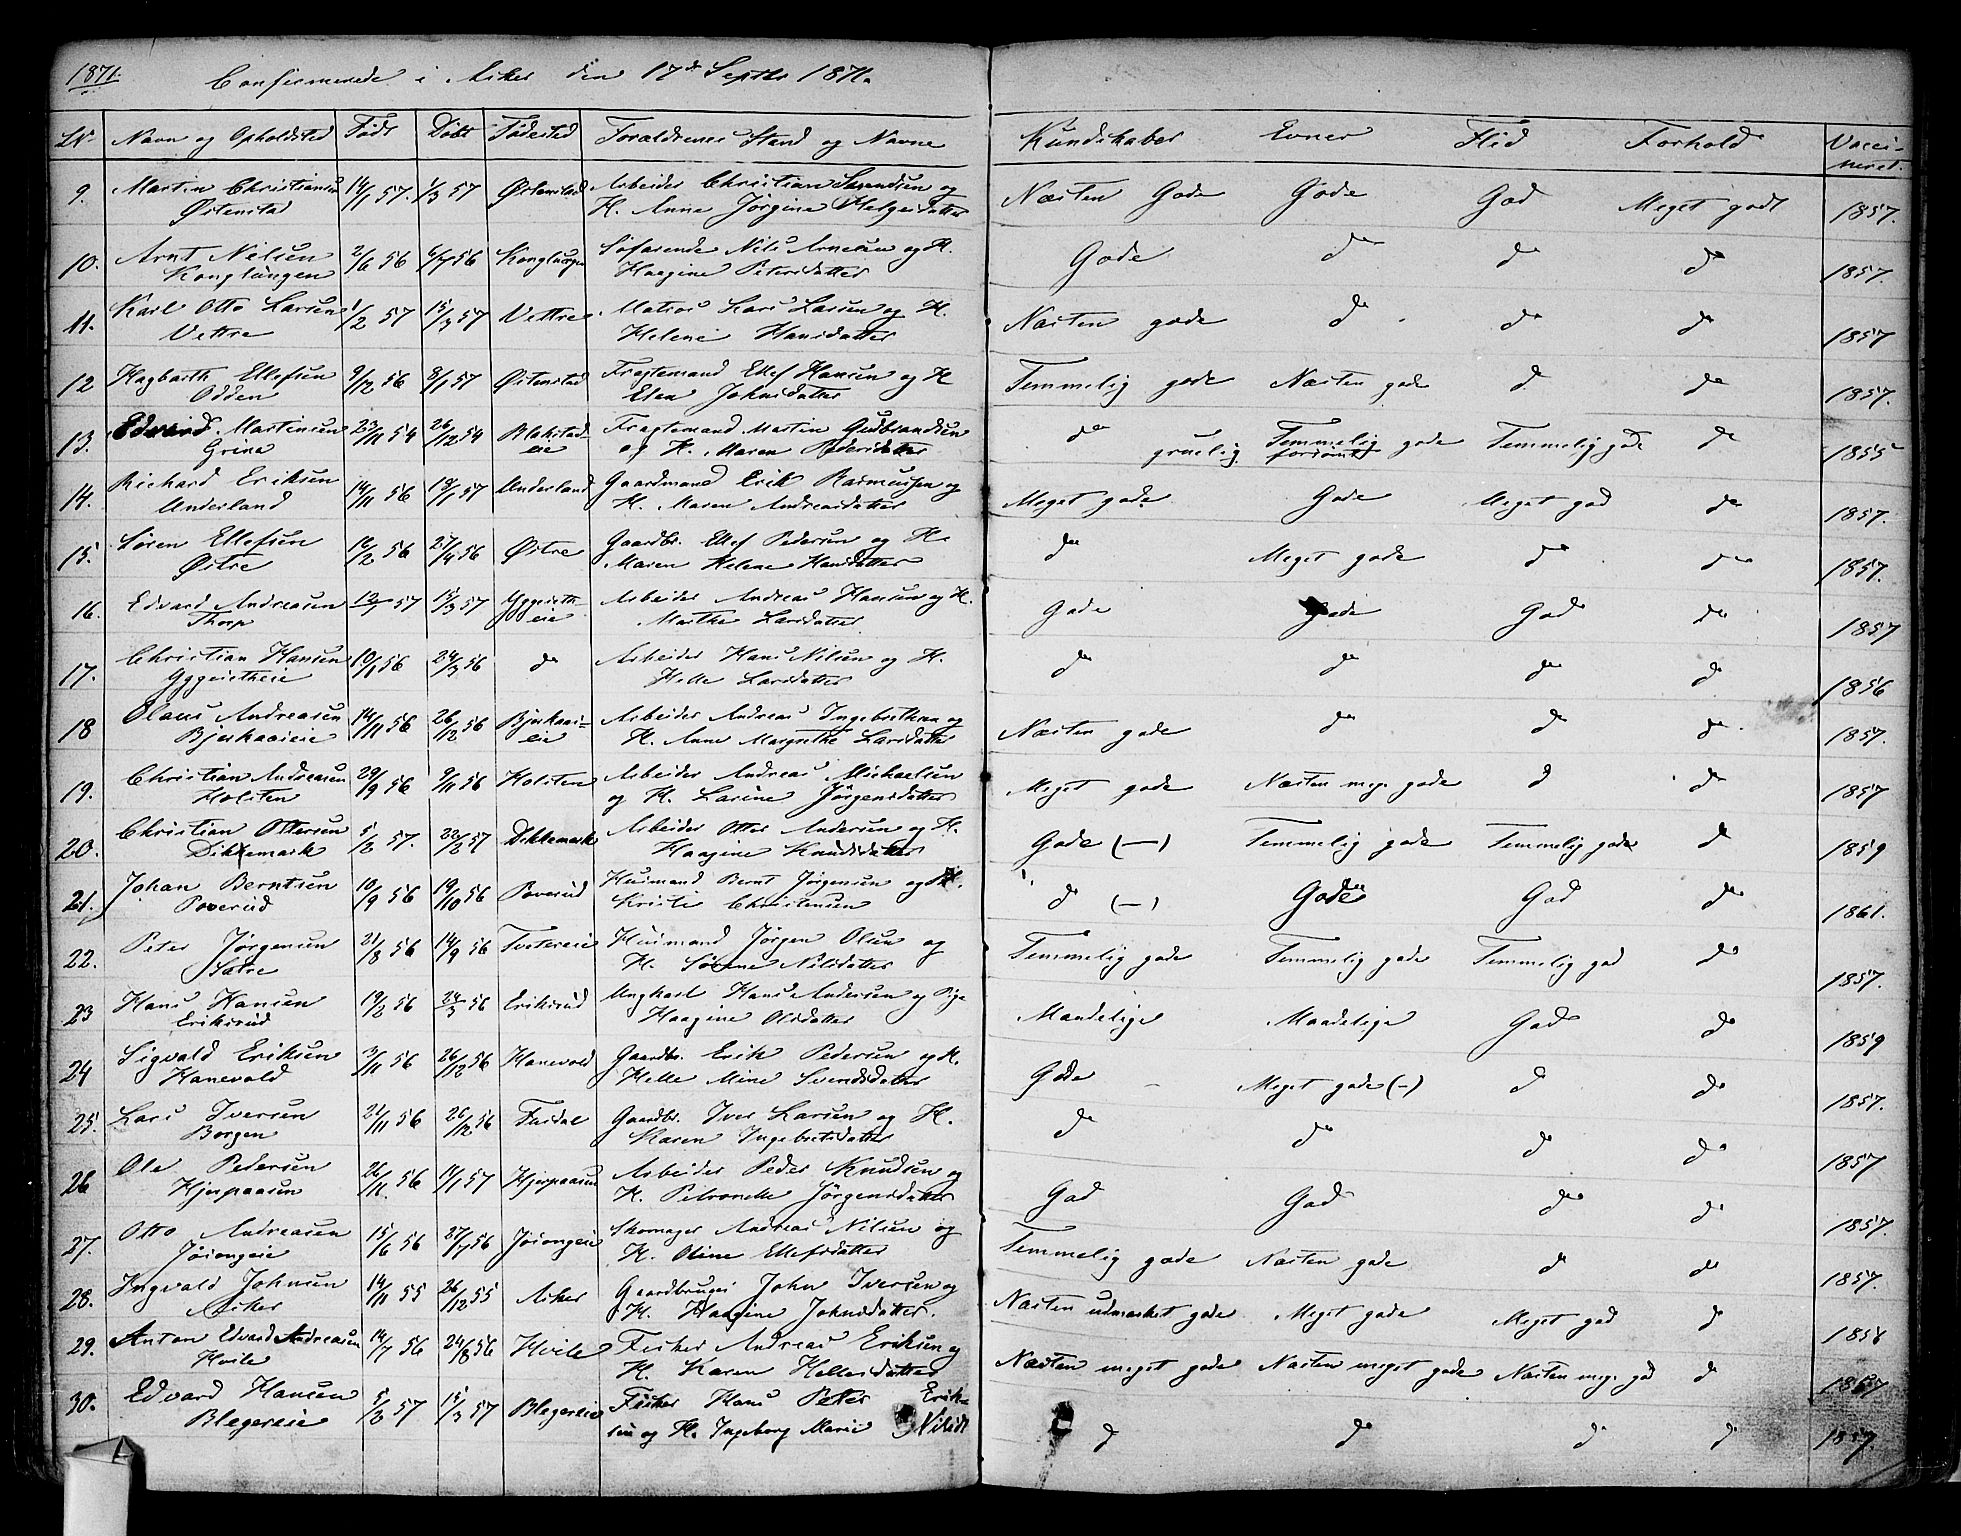 1871. Confirmerede i Asker den 17de Septbr 1871.
No Navn og Opholdsted Født Døbt Fødested Forældrenes Stand og Navne Kundskaber Evner Flid Forhold Vacci-
neret.
9. Martin Christiansen 14/1 57. 1/3 57 Østenstad Arbeider Christian Svendsen og Næsten Gode Gode God Meget godt 1857.
Østenstad H. Anne Jørgine Helgesdatter
10. Arnt Nilsen 2/6 56 6/7 56 Konglungen Søfarende Nils Arnesen og H. Gode do do do 1857.
Konglungen Haagine Petersdatter
11. Karl Otto Larsen 1/2 57 15/3 57 Vettre Matros Lars Larsen og H. Næsten gode do do do 1857
Vettre Helene Hansdatter
12 Hagbarth Ellefsen 9/12 56 8/1 57 Østenstad Fragtemand Ellef Hansen og H Temmelig gode Næsten gode do do 1857.
Odden Elen Johnsdatter
13. Edvard Martinsen 23/11 54 26/12 54 Blakstad- Fragtemand Martin Gudbrandsen do Temmelig gode Temmelig gode do 1855
Grina eie og H. Maren Pedersdatter
14. Richard Eriksen 14/11 56 18/1 57 Underland Gaardmand Erik Rasmussen og Meget gode. Gode Meget god do 1857.
Underland H. Maren Andreasdatter
15. Søren Ellefsen 16/2 56 27/4 56 Østre Gaardbr. Ellef Pedersen og H. do Meget gode do do 1857.
Østre Maren Helene Hansdatter
16. Edvard Andreasen 12/1 57 15/3 57 Yggeseth- Arbeider Andreas Hansen og H. Gode Gode God do 1857
Thorp eie Marthe Larsdatter
17. Christian Hansen 10/1 56 24/3 56 do Arbeider Hans Nilsen og H. do do do do 1856
Yggesetheie Helle Larsdatter
18 Olaus Andreasen 14/11 56 26/12 56 Bjerkaas- Arbeider Andreas Ingebrethsen og Næsten gode do do do 1857.
Bjerkaaseie eie H. Anne Margrethe Larsdatter
19. Christian Andreasen 29/9 56 9/11 56 Holsten Arbeider Andreas Michaelsen Meget gode Næsten meg. gode do do 1857
Holsten og H. Larine Jørgensdatter
20. Christian Ottersen 5/2 57. 22/2 57 Dikkemark Arbeider Otter Andersen og H. Gode (—) Temmelig gode Temmelig gode do 1859
Dikkemark Haagine Knudsdatter
21. Johan Berntsen 10/9 56 19/10 56 Poverud Huusmand Bernt Jørgensen og H. do (—) Gode God do 1861.
Poverud Kristi Christensen
22. Peter Jørgensen 21/8 56 14/9 56 Tvetereie Huusmand Jørgen Olsen og Temmelig gode Temmelig gode Temmelig god do 1857.
Sætre H. Sørine Nilsdatter
23 Hans Hansen 19/2 56 24/3 56 Eriksrud Ungkarl Hans Andersen og Pige Maadelige Maadelige God do 1859
Eriksrud Haagine Olsdatter
24 Sigvald Eriksen 3/11 56 26/12 56 Hanevold Gaardbr. Erik Pedersen og H. Gode Meget gode (—) do do 1857.
Hanevold Helle Mine Svendsdatter
25. Lars Iversen 21/11 56 26/12 56 Fusdal Gaardbr. Iver Larsen og H. do do do do 1857
Borgen Karen Ingebretsdatter
26 Ole Pedersen 26/11. 56 11/1 57 Hjerpaasen Arbeider Peder Knudsen og God God do do 1857.
Hjerpaasen H. Petronelle Jørgensdatter
27. Otto Andreasen 15/6 56 27/7 56 Jøsongeie Skomager Andreas Nilsen og Temmelig gode Næsten gode do do 1857.
Jøsongeie H. Oline Ellefsdatter
28. Ingvald Johnsen 14/11 55 26/12 55 Asker Gaardbruger John Iversen og Næsten udmærket gode Meget gode Meget god do 1858
Asker H. Haagine Johnsdatter.
29. Anton Edvard Andreasen 14/7 56 24/8 56 Hvile Fisker Andreas Eriksen og Næsten meget gode Næsten meget gode Næsten meg. god do 1857
Hvile H. Karen Hellesdatter
30. Edvard Hansen 5/2 57 15/3 57 Blegereie Fisker Hans Peter Erik- do do do do 1857
Blegereie sen og H. Ingeborg Marie Nilsdt